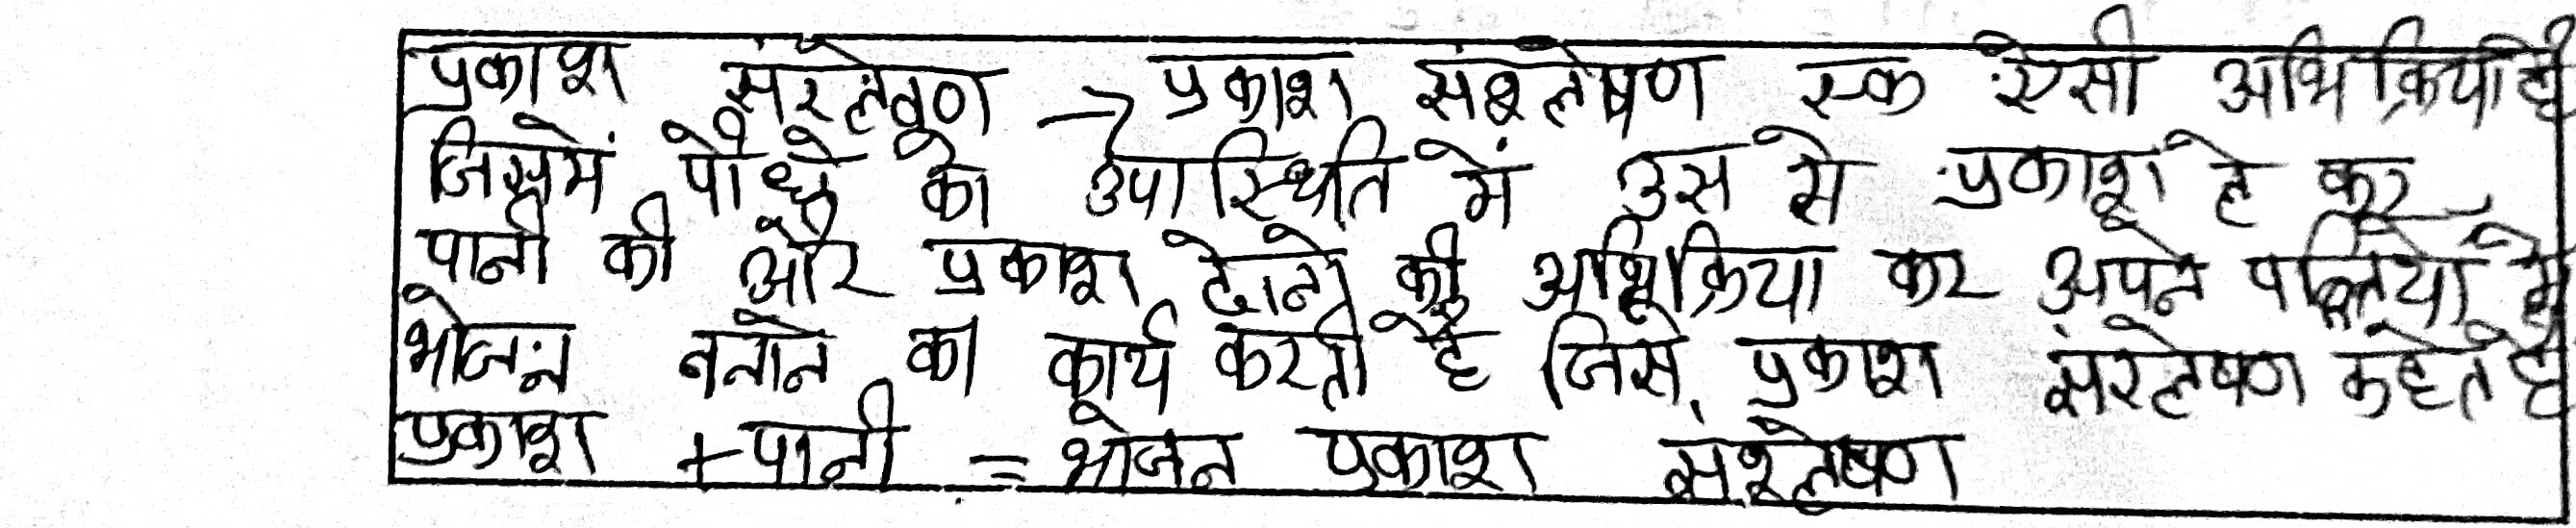 प्रकाश संश्लेषण → प्रकाश संश्लेषण एक ऐसी अभिक्रिया है
जिसमें पौधे को उपास्थिति में उस से प्रकाश ले कर
पानी की और प्रकाश दोनो की अभिक्रिया कर अपने पत्तियो मे
भोजन बनाने का कार्य करती है जिसे प्रकाश संश्लेषण कहेते है
प्रकाश + पानी = भोजन प्रकाश संश्लेषण